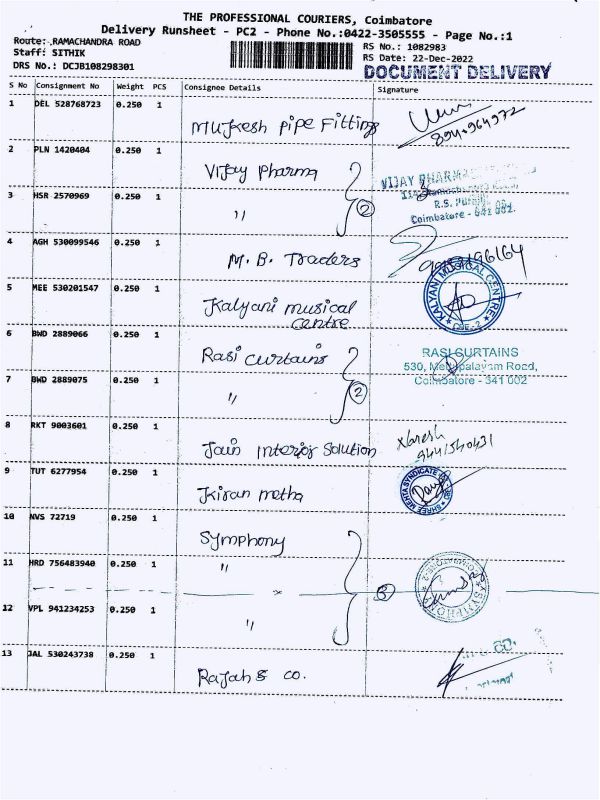 THE PROFESSIONAL COURIERS, Coimbatore
Delivery Runsheet - PC2 - Phone No.:0422-3505555 - Page No.:1
Route: RAMACHANDRA ROAD
Staff: SITHIK
DRS No.: DCJB108298301
RS No.: 1082983
RS Date: 22-Dec-2022
DOCUMENT DELIVERY
S No Consignment No Weight PCS Consignee Details Signature
1 DEL 528768723 0.250 1 Mukesh Pipe Fittings
2 PLN 1420404 0.250 1 Vijay Pharma
VIJAY PHARMA
R.S. PURAM
Coimbatore - 641 002.
3 HSR 2570969 0.250 1 " 2
4 AGH 530099546 0.250 1 M. B. Traders
5 MEE 530201547 0.250 1 Kalyani musical centre
KALYANI MUSICAL CENTRE
CBE-2
6 BWD 2889066 0.250 1 Rasi curtains
RASI CURTAINS
530, Mettupalayam Road,
Coimbatore - 641 002
7 BWD 2889075 0.250 1 " 2
8 RKT 9003601 0.250 1 Jain Interior Solution
9 TUT 6277954 0.250 1 Kiran metha
SHREE MEHTA SYNDICATE
10 NVS 72719 0.250 1 Symphony
11 HRD 756483940 0.250 1 " 3
SYMPHONY
COIMBATORE-2
12 VPL 941234253 0.250 1 "
13 JAL 530243738 0.250 1 Rajah & co.